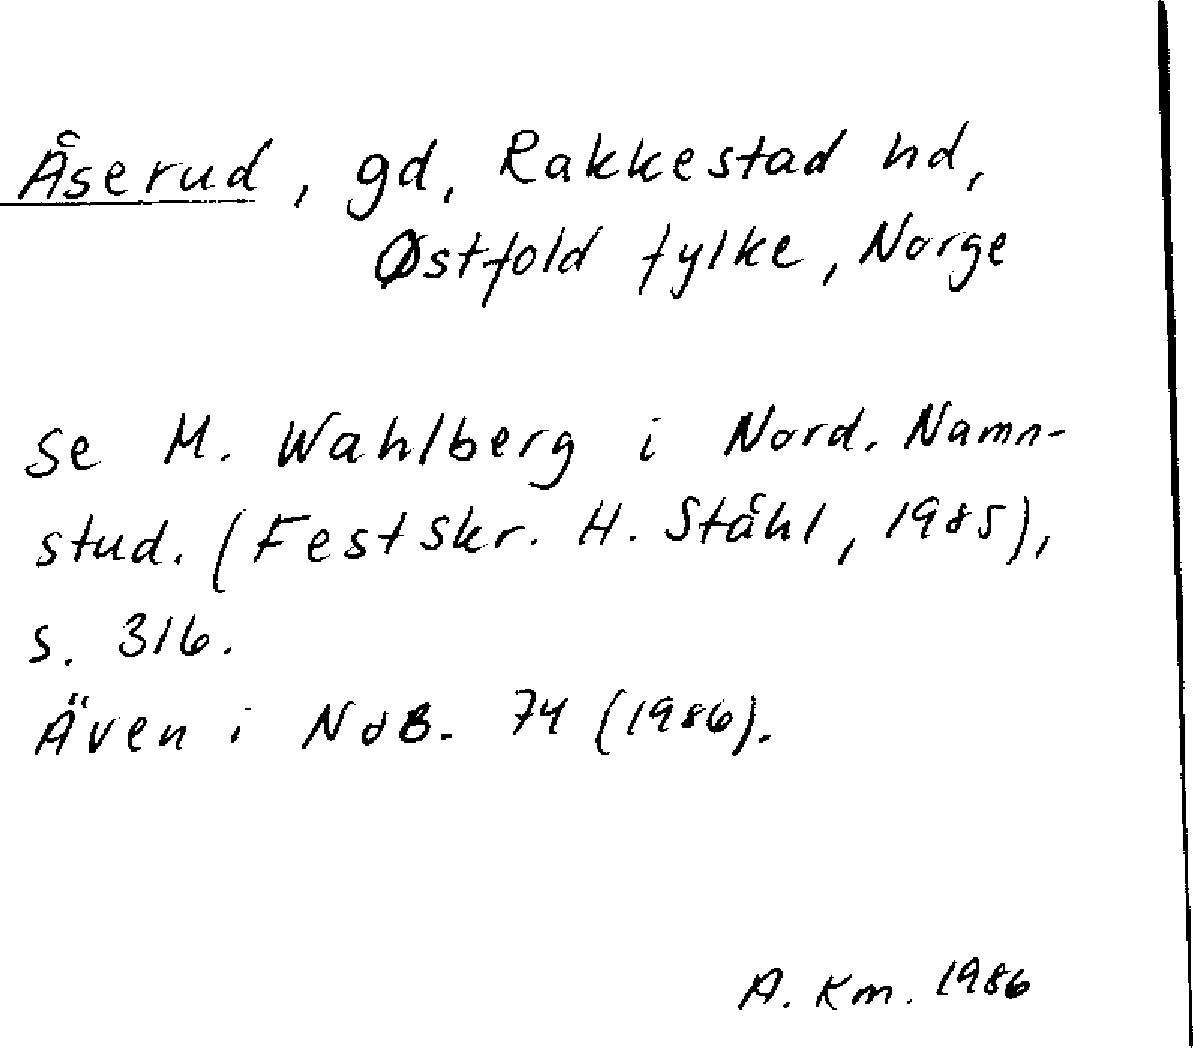 Åserud, gd, Rakkestad hd,
Østfold fylke, Norge
Se M. Wahlberg i Nord. Namn-
stud. (Festskr. H. Ståhl, 1985),
s. 316.
Även i NoB. 74 (1986).
A. Km. 1986